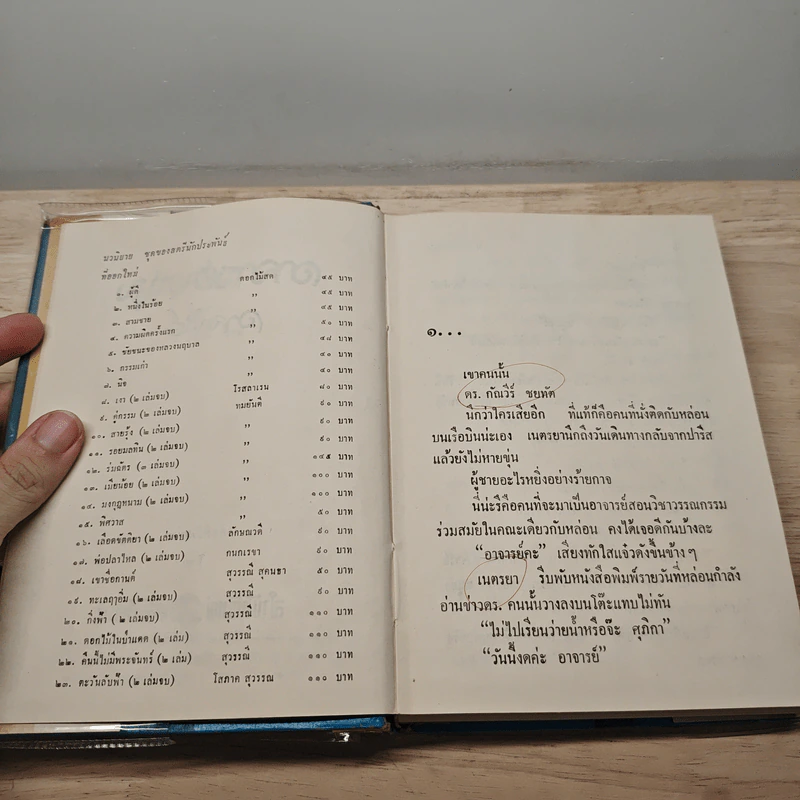 นวนิยาย ชุดของสตรีนักประพันธ์
ที่ออกใหม่
๑. ผู้ดี ดอกไม้สด ๔๕ บาท
๒. หนึ่งในร้อย ,, ๔๕ บาท
๓. สามชาย ,, ๔๕ บาท
๔. ความผิดครั้งแรก ,, ๕๐ บาท
๕. ชัยชนะของหลวงนฤบาล ,, ๔๘ บาท
๖. กรรมเก่า ,, ๔๐ บาท
๗. นิจ ,, ๔๐ บาท
๘. เงา (๒ เล่มจบ) โรสลาเรน ๘๐ บาท
๙. คู่กรรม (๒ เล่มจบ) ทมยันตี ๙๐ บาท
๑๐. สายรุ้ง (๒ เล่มจบ) ,, ๙๐ บาท
๑๑. รอยมลทิน (๒ เล่มจบ) ,, ๙๐ บาท
๑๒. ร่มฉัตร (๓ เล่มจบ) ,, ๑๔๕ บาท
๑๓. เมียน้อย (๒ เล่มจบ) ,, ๑๐๐ บาท
๑๔. มงกุฎหนาม (๒ เล่มจบ) ,, ๑๐๐ บาท
๑๕. พิศวาส ,, ๕๐ บาท
๑๖. เลือดขัตติยา (๒ เล่มจบ) ลักษณวดี ๙๐ บาท
๑๗. พ่อปลาไหล (๒ เล่มจบ) กนกเรขา ๙๐ บาท
๑๘. เขาชื่อกานต์ สุวรรณี สุคนธา ๕๐ บาท
๑๙. ทะเลฤาอิ่ม (๒ เล่มจบ) สุวรรณี ๙๐ บาท
๒๐. กิ่งฟ้า (๒ เล่มจบ) สุวรรณี ๑๑๐ บาท
๒๑. ดอกไม้ในป่าแดด (๒ เล่ม) สุวรรณี ๑๑๐ บาท
๒๒. คืนนี้ไม่มีพระจันทร์ (๒ เล่ม) สุวรรณี ๑๑๐ บาท
๒๓. ตะวันลับฟ้า (๒ เล่มจบ) โสภาค สุวรรณ ๑๑๐ บาท
๑...
เขาคนนั้น
ดร. กัณวีร์ ชยทัต
นึกว่าใครเสียอีก ที่แท้ก็คือคนที่นั่งติดกับหล่อน
บนเรือบินน่ะเอง เนตรยานึกถึงวันเดินทางกลับจากปารีส
แล้วยังไม่หายขุ่น
ผู้ชายอะไรหยิ่งอย่างร้ายกาจ
นี่น่ะรึคือคนที่จะมาเป็นอาจารย์สอนวิชาวรรณกรรม
ร่วมสมัยในคณะเดียวกับหล่อน คงได้เจอดีกันบ้างละ
“อาจารย์คะ” เสียงทักใสแจ๋วดังขึ้นข้าง ๆ
เนตรยา รีบพับหนังสือพิมพ์รายวันที่หล่อนกำลัง
อ่านข่าวดร. คนนั้นวางลงบนโต๊ะแทบไม่ทัน
“ไม่ไปเรียนว่ายน้ำหรือจ๊ะ ศุภิกา”
“วันนี้งดค่ะ อาจารย์”